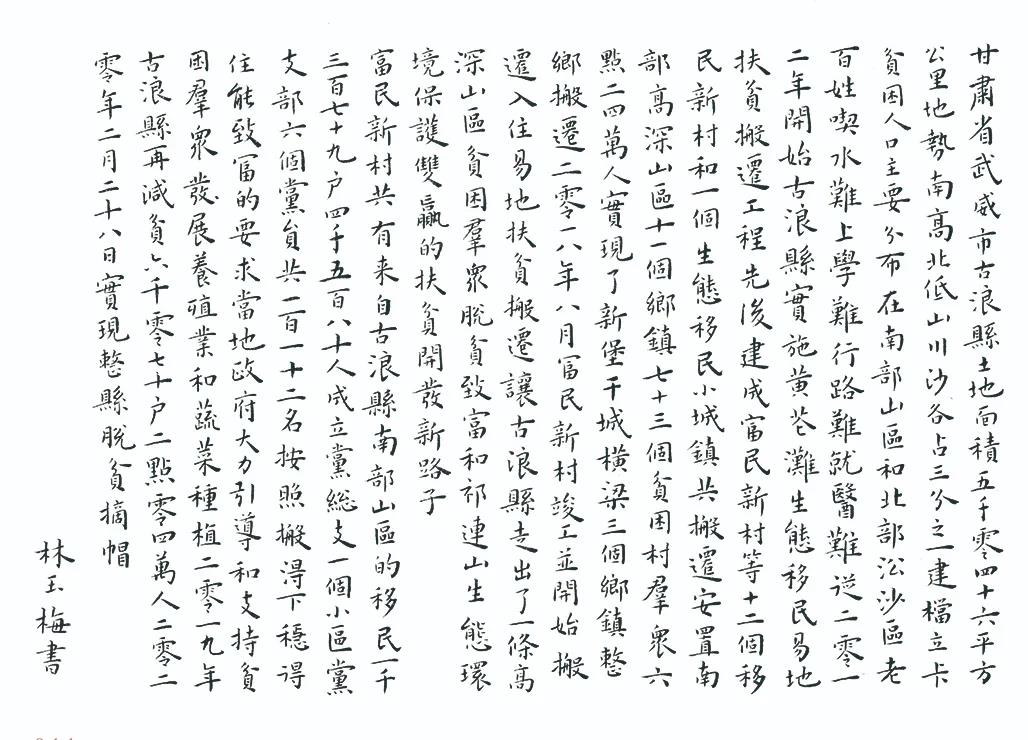 甘肅省武威市古浪縣土地面積五千零四十六平方
公里地勢南高北低山川沙各占三分之一建檔立卡
貧困人口主要分布在南部山區和北部㳂沙區老
百姓喫水難上學難行路難就醫難從二零一
二年開始古浪縣實施黃芲灘生態移民易地
扶貧搬遷工程先後建成富民新村等十二個移
民新村和一個生態移民小城鎮共搬遷安置南
部高深山區十一個鄉鎮七十三個貧困村羣衆六
點二四萬人實現了新堡干城橫梁三個鄉鎮整
鄉搬遷二零一八年八月富民新村竣工並開始搬
遷入住易地扶貧搬遷讓古浪縣走出了一條高
深山區貧困羣衆脫貧致富和祁連山生態環
境保護雙贏的扶貧開發新路子
富民新村共有来自古浪縣南部山區的移民一千
三百七十九户四千五百八十人成立黨総支一個小區黨
支部六個黨員共二百一十二名按照搬得下穩得
住能致富的要求當地政府大力引導和支持貧
困羣衆發展養殖業和蔬菜種植二零一九年
古浪縣再減貧六千零七十户二點零四萬人二零二
零年二月二十八日實現整縣脫貧摘帽
林玉梅書